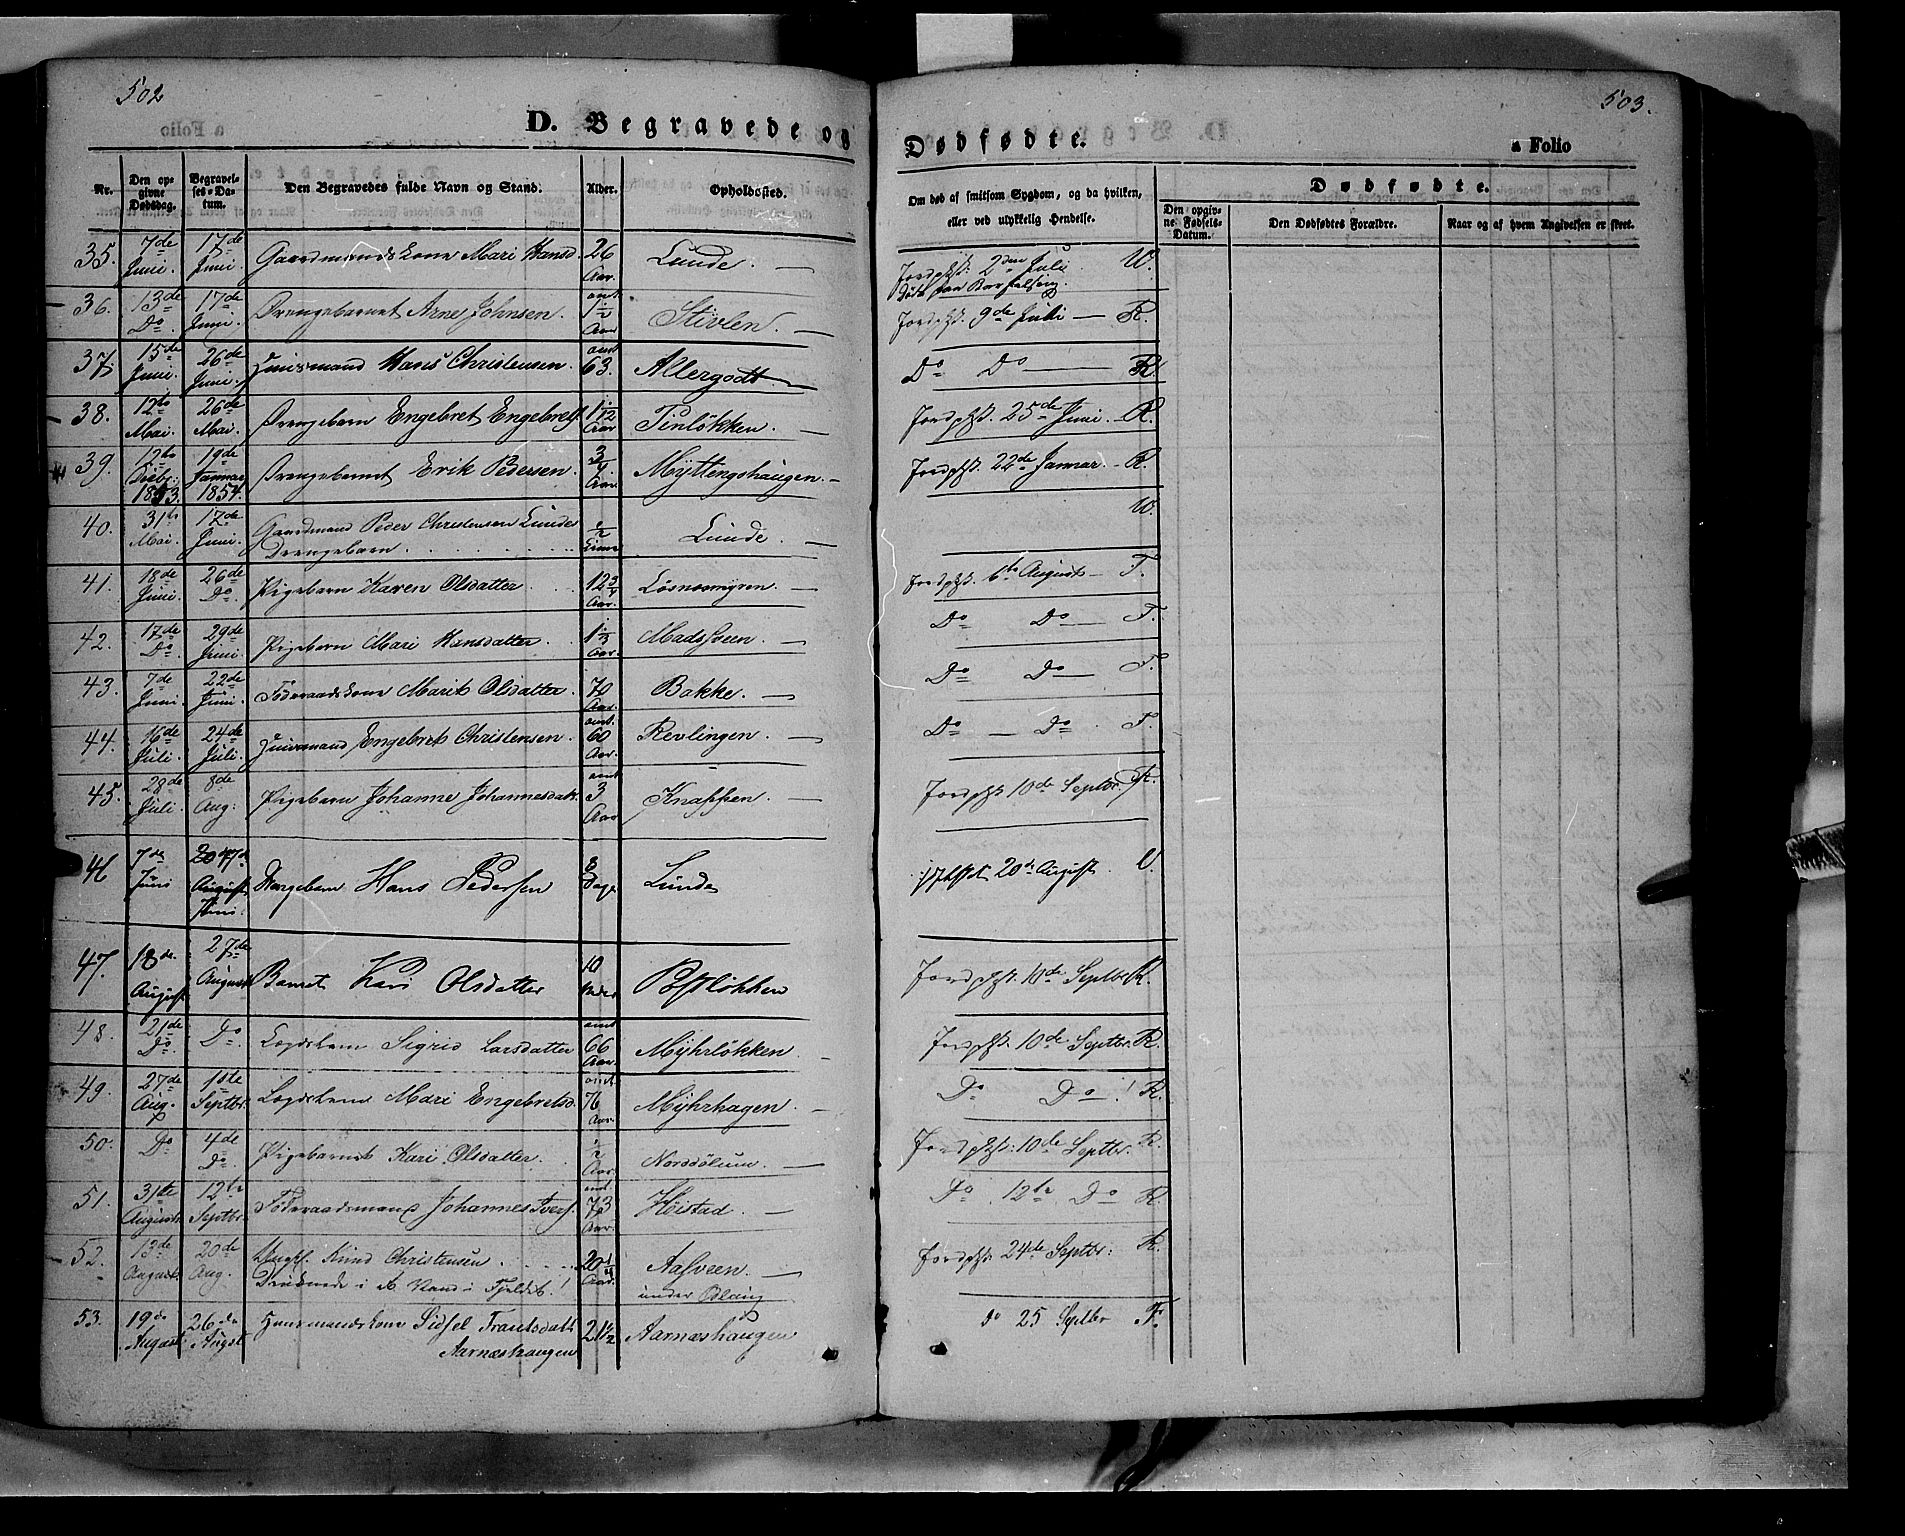 502
503.
D. Begravede og
Dødfødte.
a Folio
Nr.
Den opgivne Dødsdag.
Begravelses-Datum.
Den Begravedes fulde Navn og Stand.
Alder.
Opholdssted.
Om død af smitsom Sygdom, og da hvilken, eller ved ulykkelig Hendelse.
Dødfødte.
Den opgivne Fødsels-Datum.
Den Dødfødtes Forældre.
Naar og af hvem Angivelsen er skeet.
35. 7de Juni. 17de Juni. Gaardmandskone Mari Hansd. 26 Aar. Lunde. — Jordpkst. 2den Juli W.
36. 13de Do 17de Juni. Drengebarnet Arne Johnsen. 1½ Aar Stivlen. — Jordpkst. 9de Juli — R.
37. 15de Juni. 26de Juni. Huusmand Hans Christensen. 63. Allergodt — Do Do — R.
38. 12te Mai. 26de Mai. Drengebarn Engebret Engebrets. 1 1/12 Aar Tinløkken. — Jordpkst. 25de Juni. R.
39. 12te Decbr. 1853. 19de Januar 1854. Drengebarnet Erik Pedersen. 3/4 Aar. Myttingshaugen. — Jordpkst. 22de Januar. R.
40. 31te Mai. 17de Juni. Gaardmand Peder Christensen Lundes
Drengebarn ½ Lunde. — W.
41. 18de Juni. 26de Do. Pigebarn Karen Olsdatter 12¾ Aar. Løsnesmyren. — Jordpkst. 6te August — T.
42. 17de Do 29de Juni. Pigebarn Mari Hansdatter. 1⅓ Aar. Madssveen. — Do Do — T.
43. 7de Juni. 22de Juni. Føderaadskone Marit Olsdatter. 70 Aar. Bakke. — Do Do — T.
44. 16de Juli. 24de Juli. Huusmand Engebret Christensen. omt. 60 Aar. Revlingen. — Do — Do. T.
45. 28de Juli. 8de Aug: Pigebarn Johanne Johannesdatr. omt 3 Aar Knappen. — Jordpkst 10de Septbr. R.
46 7de Juni August Juni. Drengebarn Hans Pedersen 8 Dage Lunde 20de August W.
47. 18de August 27de August Barnet Kari Olsdatter 10 Uger Postløkken Jordpkst. 10de Septbr R.
48. 21de Do. Do. Lægdslem Sigrid Larsdatter omt 66 Aar. Myhrløkken. — Jordpkst. 10de Septbr. R.
49. 27de Aug. 1ste Septbr. Lægdslem Mari Engebretsd. omt. 76 Aar. Myhrhagen. — Do Do ! R.
50. Do 4de Do. Pigebarnet Kari Olsdatter. ½ Aar. Norddølum. — Jordpkst: 10de Septbr. R.
51. 31te August 12te Septbr. Føderaadsmand Johannes Ivers. omt. 73 Aar. Høistad. — Do 12te Do R.
52. 13de August. 20de Aug. Ungk. Knud Christensen.
Druknede i et Vand i Fjeldet! 20¼ Aar. Aasveen. —
under Olaug Jordpkst. 24de Septbr: R.
53. 19de August 26de August Huusmandskone Sidsel Frantsdatt
Aarnæshaugen 21½ Aarnæshaugen do 25 Septbr T.